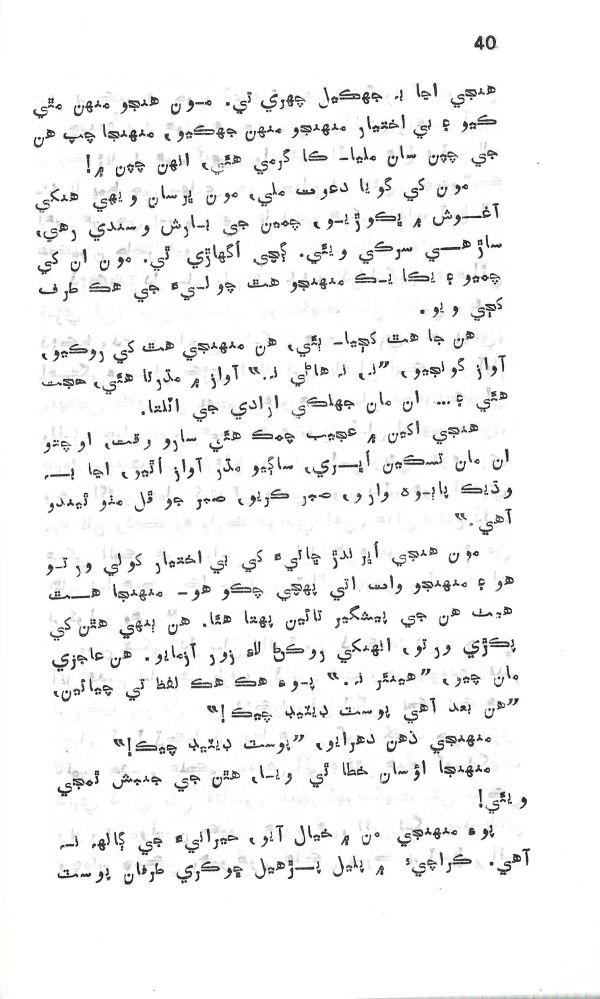 40
هنجي اڃا بہ جهڪيل چهري تي. مون هنجو منهن مٿي
ڪيو ۽ بي اختيار منهنجو منهن جهڪيو، منهنجا چپ هن
جي چپن سان مليا۔ ڪا گرمي هئي، انهن چپن ۾!
مون کي گويا دعوت ملي، مون ڀرسان ويهي هنکي
آغوش ۾ ڀڪوڙيو، چمين جي بارش وسندي رهي،
ساڙهي سرڪي ويئي. ڳچي اگهاڙي ٿي. مون ان کي
چميو ۽ يڪايڪ منهنجو هٿ چوليءَ جي هڪ طرف
کڄي ويو.
هن جا هٿ کڄيا۔ ٻئي، هن منهنجي هٿ کي روڪيو،
آواز گونجيو، ”نہ، نہ هاڻي نہ.“ آواز ۾ مڌرتا هئي، حجت
هئي ۽... ان مان جهلڪي ارادي جي اڻلڀتا.
هنجي اکين ۾ عجيب چمڪ هئي سارو وقت، اوچتو
ان مان تسڪين اڀري، ساڳيو مڌر آواز آئير، اڃا بہ
وڌيڪ پاٻوه وارو، صبر ڪريو، صبر جو ڦل مٺو ٿيندو
آهي.“
مون هنجي اڀرندڙ ڇاتيءَ کي بي اختيار کولي ورتو
هو ۽ منهنجو وات اتي پهچي چڪو هو۔ منهنجا هٿ
هيٺ هن جي پيشگير تائين پهتا هئا. هن ٻنهي هٿن کي
پڪڙي ورتو، انهنکي روڪڻ لاءِ زور آزمايو. هن عاجزي
مان چيو، ”هينئر نہ.“ پوءِ هڪ هڪ لفظ تي چيائين،
”هن بعد آهي پوسٽ ڊيٽيڊ چيڪ!“
منهنجي ذهن دهرايو، ”پوسٽ ڊيٽيڊ چيڪ!“
منهنجا اؤسان خطا ٿي ويا، هٿن جي جنبش ٿمجي
ويئي!
پوءِ منهنجي من ۾ خيال آيو، حيرانيءَ جي ڳالهہ نہ
آهي. ڪراچيءَ ۾ پليل پڙهيل ڇوڪري طرفان پوسٽ